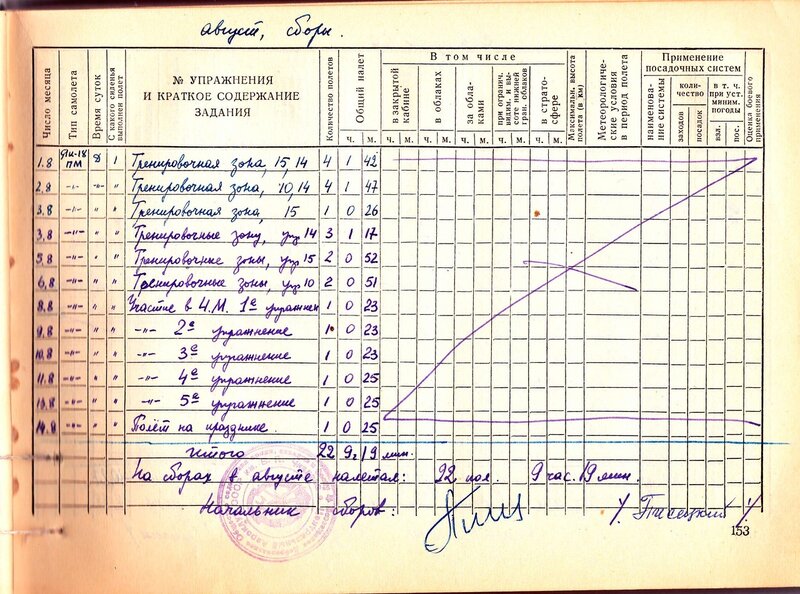 август, сборы.
Число месяца
Тип самолета
Время суток
С какого сиденья выполнен полет
№ УПРАЖНЕНИЯ
И КРАТКОЕ СОДЕРЖАНИЕ
ЗАДАНИЯ
Количество полетов
Общий налет
В том числе
в закрытой кабине
в облаках
за облаками
при огранич. видим. и высоте нижней гран. облаков
в стратосфере
Максимальн. высота полета (в км)
Метеорологические условия в период полета
Применение
посадочных систем
наименование системы
количество
заходов
посадок
в т. ч. при уст. миним. погоды
взл.
пос.
Оценка боевого применения
ч. м. ч. м. ч. м. ч. м. ч. м. ч. м.
1.8 Як-18 ПМ 1 Тренировочная зона, 15, 14 4 1 42
2.8 -"- " " Тренировочная зона, 10, 14 4 1 47
3.8 -"- " " Тренировочная зона, 15 1 0 26
3.8 -"- " " Тренировочные зону, упр 14 3 1 17
5.8 -"- " " Тренировочные зоны, упр 15 2 0 52
6.8 -"- " " Тренировочные зоны, упр 10 2 0 51
8.8 -"- " " Участие в Ч.М. 1е упражнен 1 0 23
9.8 -"- " " -"- 2е упражнение 1 0 23
10.8 -"- " " -"- 3е упражнение 1 0 23
11.8 -"- " " -"- 4е упражнение 1 0 25
-"- " " -"- 5е упражнение 1 0 25
-"- " " Полёт на празднике. 1 0 25
Итого 22 9ч 19 мин.
На сборах в августе налетал: 22 пол. 9 час. 19 мин.
Начальник сборов: /Писецкий/
153